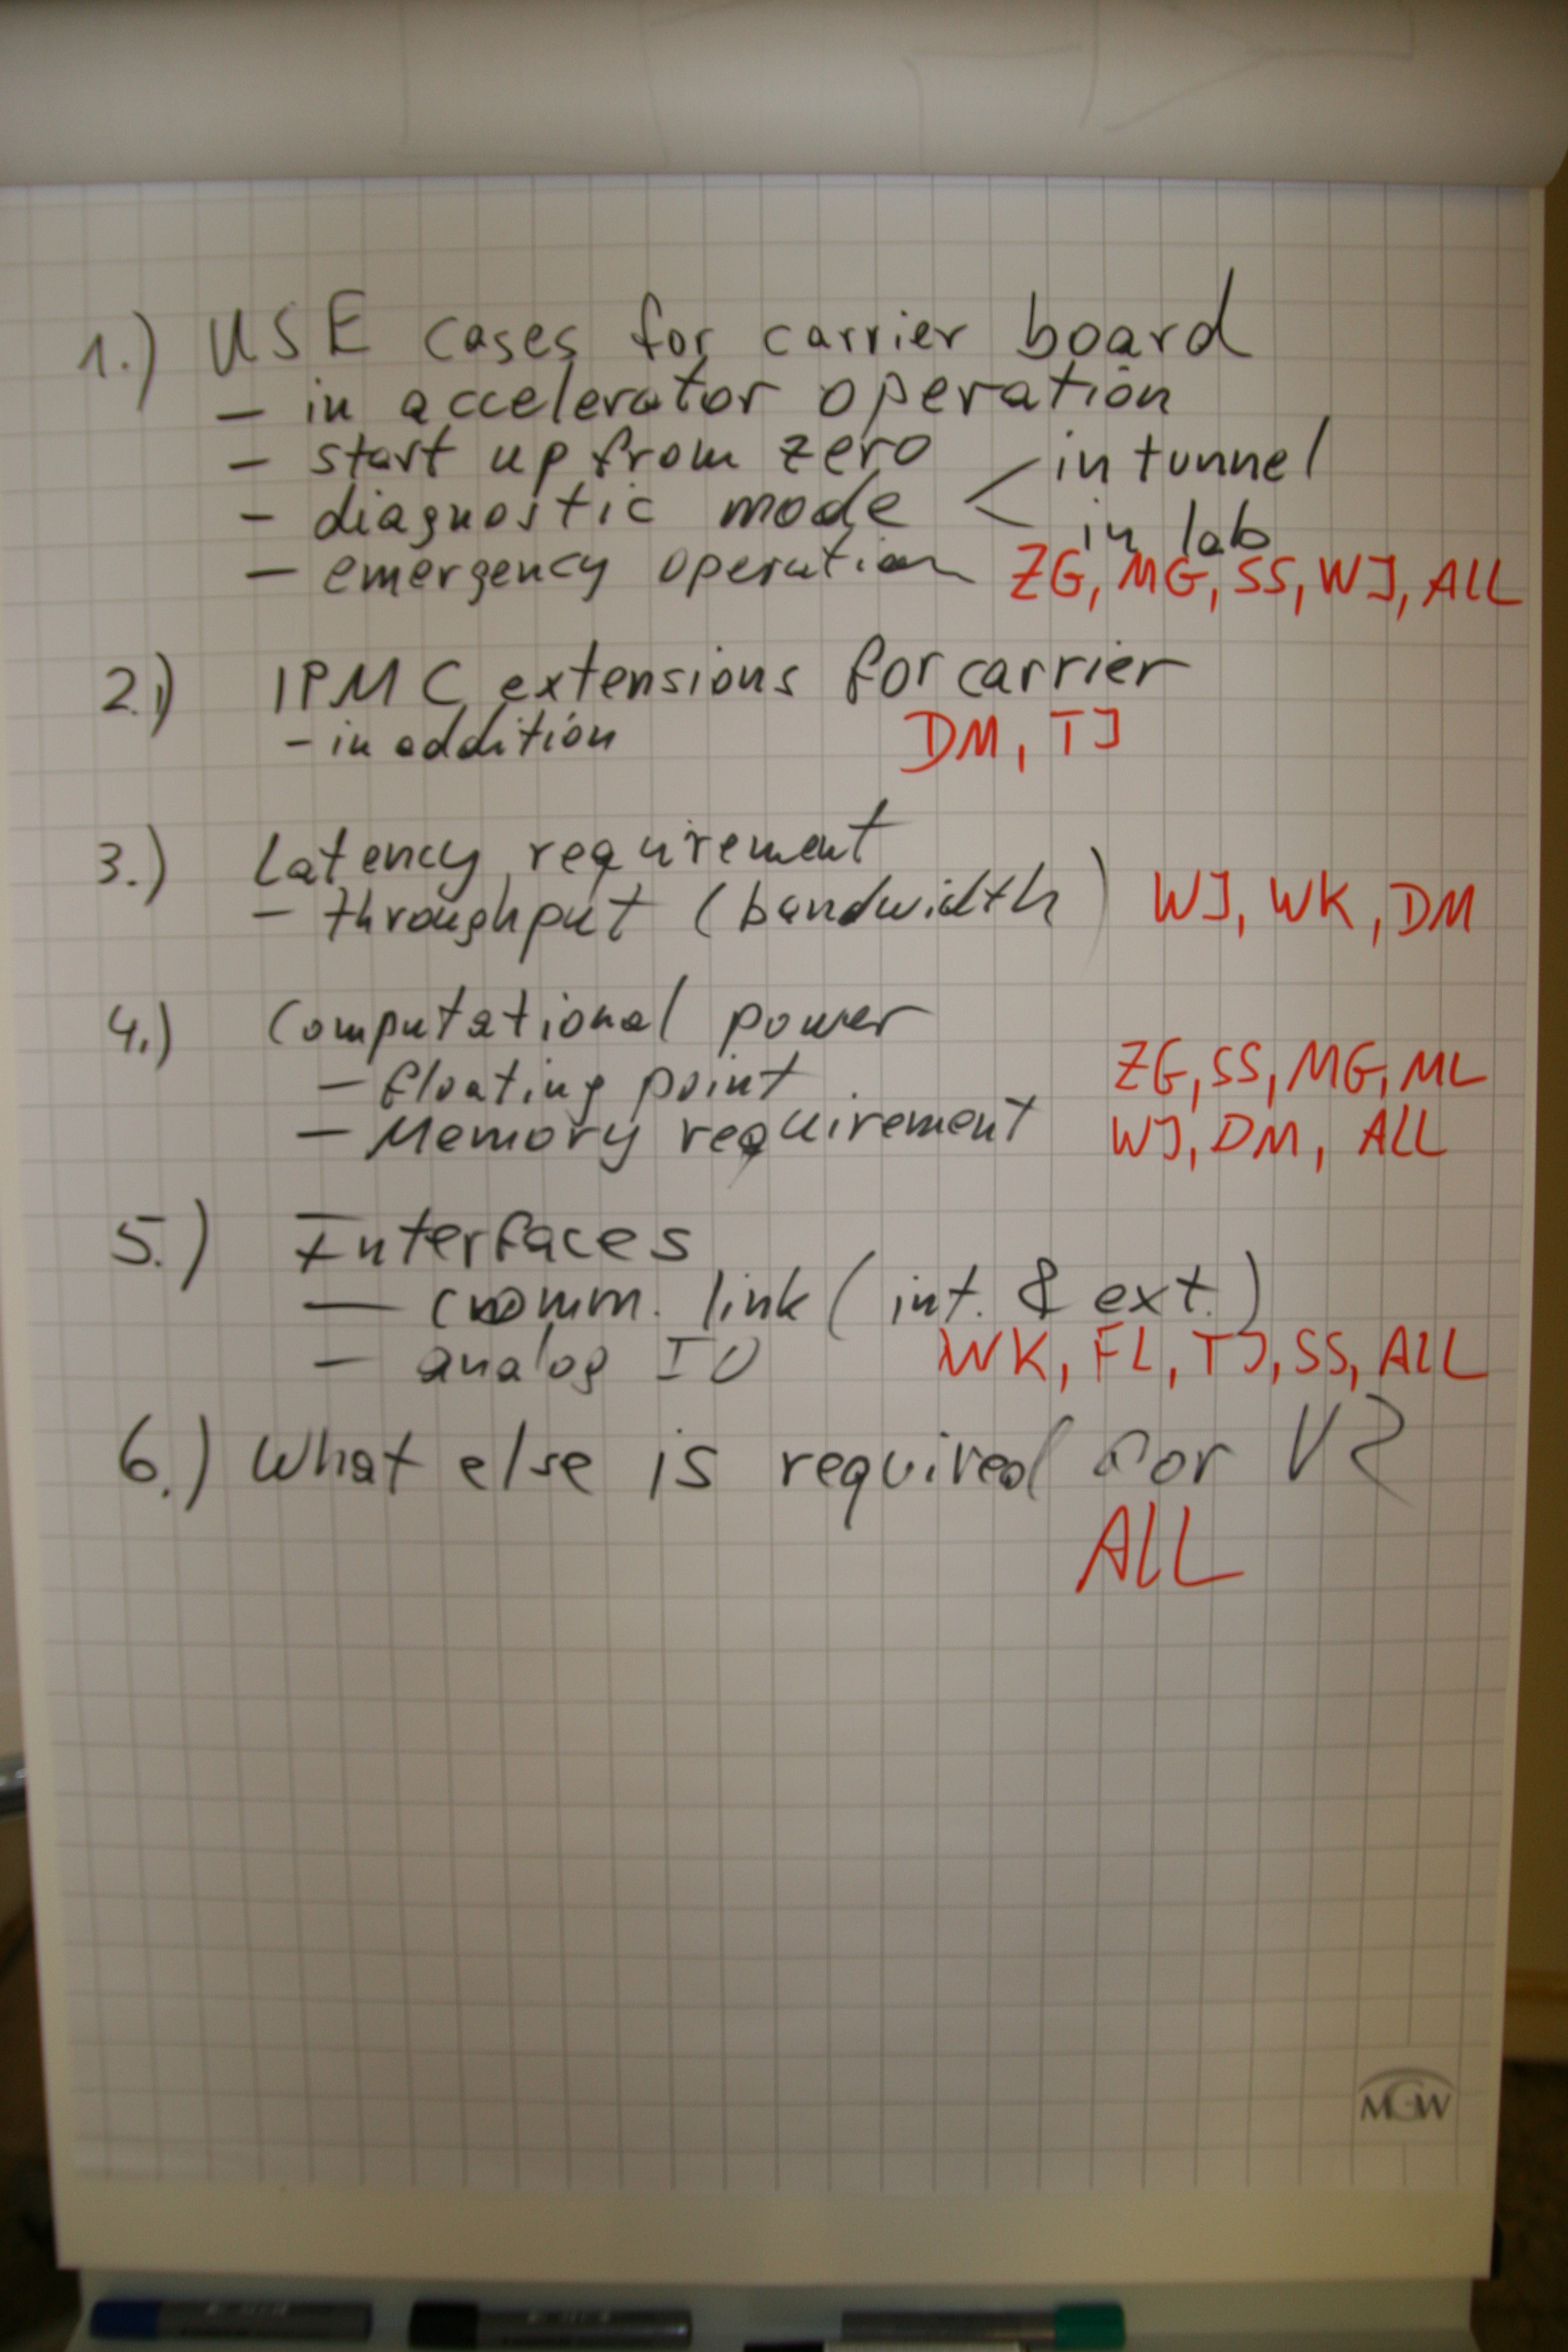 1.) USE cases for carrier board
- in accelerator operation
- start up from zero
- diagnostic mode < in tunnel
in lab
- emergency operation ZG, MG, SS, WJ, ALL
2.) IPMC extensions for carrier
- in addition DM, TJ
3.) Latency requirement
- throughput (bandwidth) WJ, WK, DM
4.) Computational power
- floating point ZG, SS, MG, ML
- Memory requirement WJ, DM, ALL
5.) Interfaces
- comm. link (int. & ext.)
- analog IO WK, FL, TJ, SS, ALL
6.) What else is required for V2
ALL
MGW